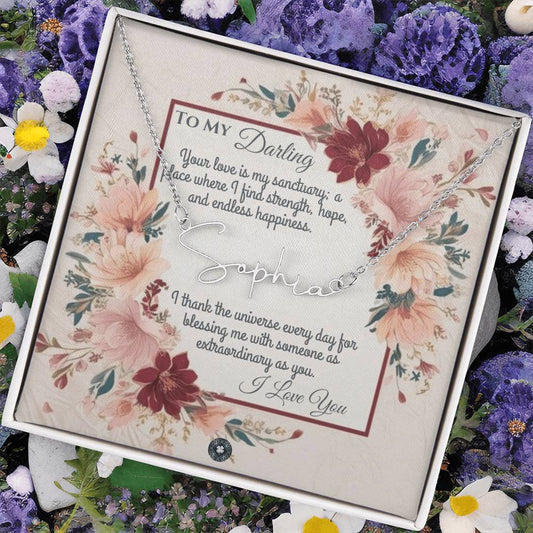 To My Darling
Your love is my sanctuary; a
place where I find strength, hope,
and endless happiness.
Sophia
I thank the universe every day for
blessing me with someone as
extraordinary as you.
I Love You